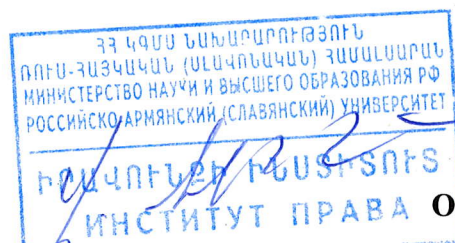 ՀՀ ԿԳՄՍ ՆԱԽԱՐԱՐՈՒԹՅՈՒՆ
ՌՈՒՍ-ՀԱՅԿԱԿԱՆ (ՍԼԱՎՈՆԱԿԱՆ) ՀԱՄԱԼՍԱՐԱՆ
МИНИСТЕРСТВО НАУКИ И ВЫСШЕГО ОБРАЗОВАНИЯ РФ
РОССИЙСКО-АРМЯНСКИЙ (СЛАВЯНСКИЙ) УНИВЕРСИТЕТ
ԻՐԱՎՈՒՆՔԻ ԻՆՍՏԻՏՈՒՏ
ИНСТИТУТ ПРАВА О